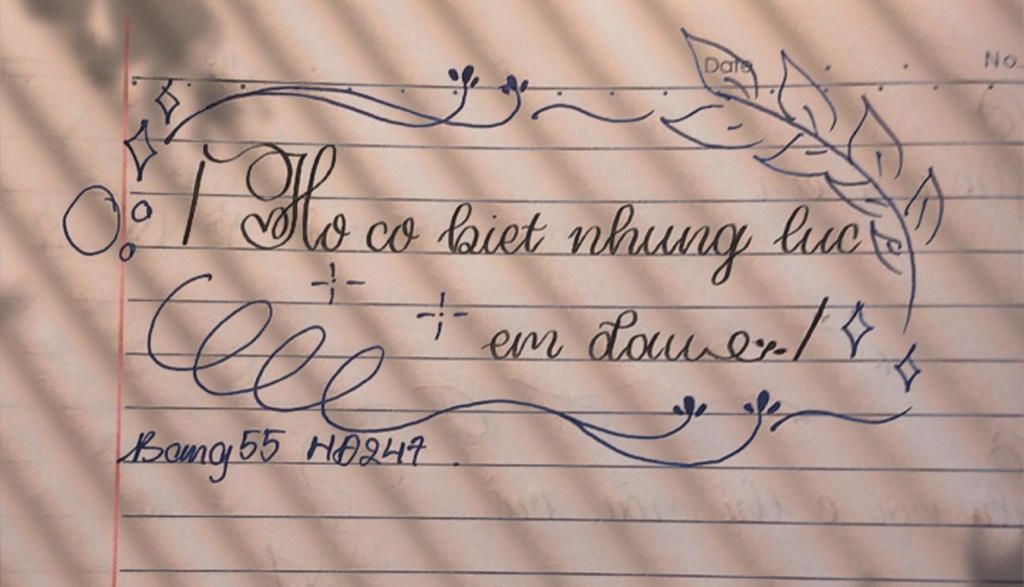 Date No.
/ Ho co biet nhung luc
em dau ... /
Bang 55 HD247.